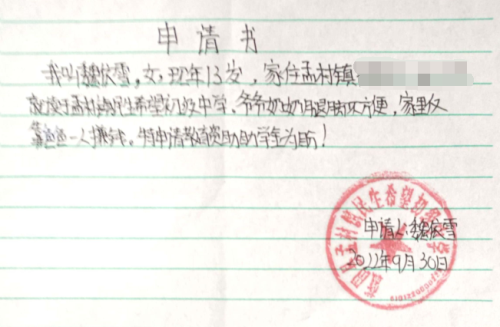 申请书
我叫魏依雪,女,现年13岁,家住孟村镇
就读于孟村镇民生希望初级中学、爷爷奶奶腿脚不方便,家里仅
靠爸爸一人挣钱。特申请教育资助助学金为盼!
申请人:魏依雪
2022年9月30日
孟村镇民生希望初级中学